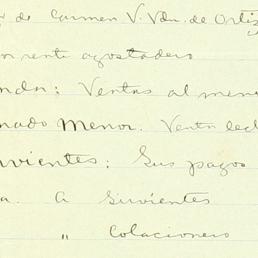 de Carmen V. Vda. de Ortiz
en renta agostadero
nda: Ventas al men
nado Menor. Venta lech
rvientes: Sus pagos
a. A Sirvientes
" Colacionero